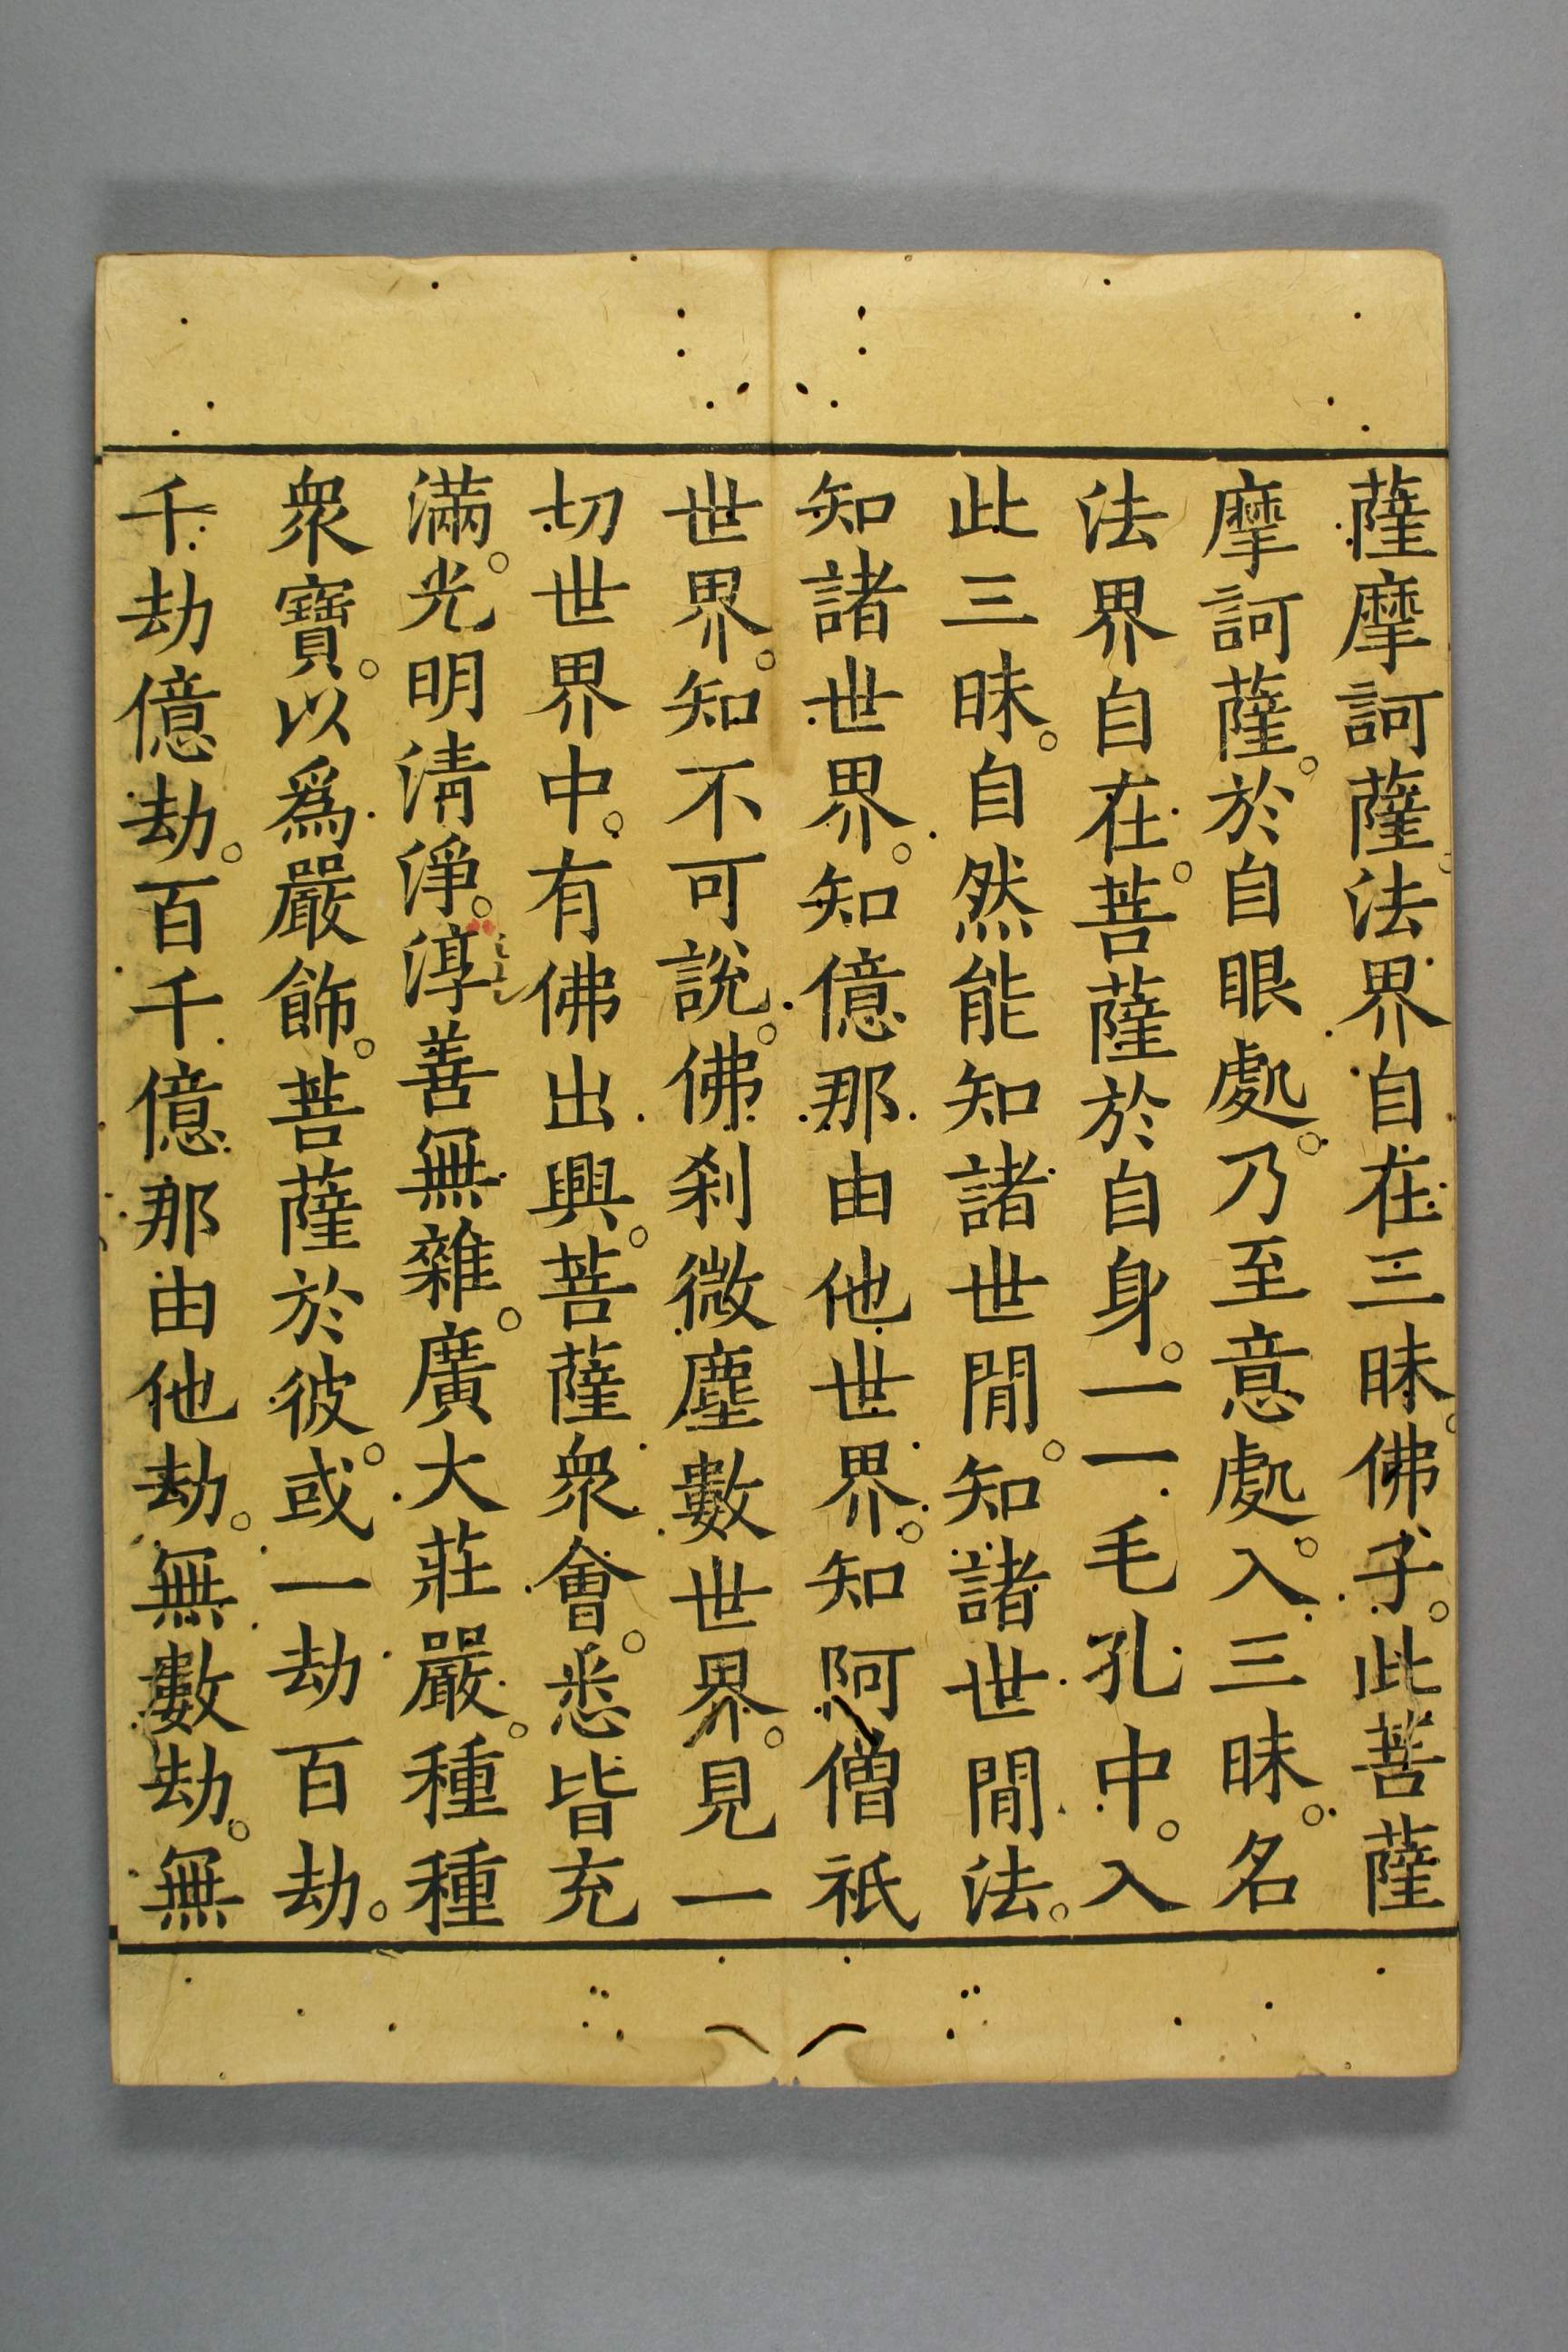 薩摩訶薩。法界自在三昧。佛子。此菩薩
摩訶薩。於自眼處。乃至意處。入三昧。名
法界自在。菩薩於自身。一一毛孔中。入
此三昧。自然能知諸世間。知諸世間法。
知諸世界。知億那由他世界。知阿僧祇
世界。知不可說。佛刹微塵數世界。見一
切世界中。有佛出興。菩薩衆會。悉皆充
滿。光明清淨。淳善無雜。廣大莊嚴。種種
衆寶。以爲嚴飾。菩薩於彼。或一劫百劫。
千劫億劫。百千億那由他劫。無數劫。無